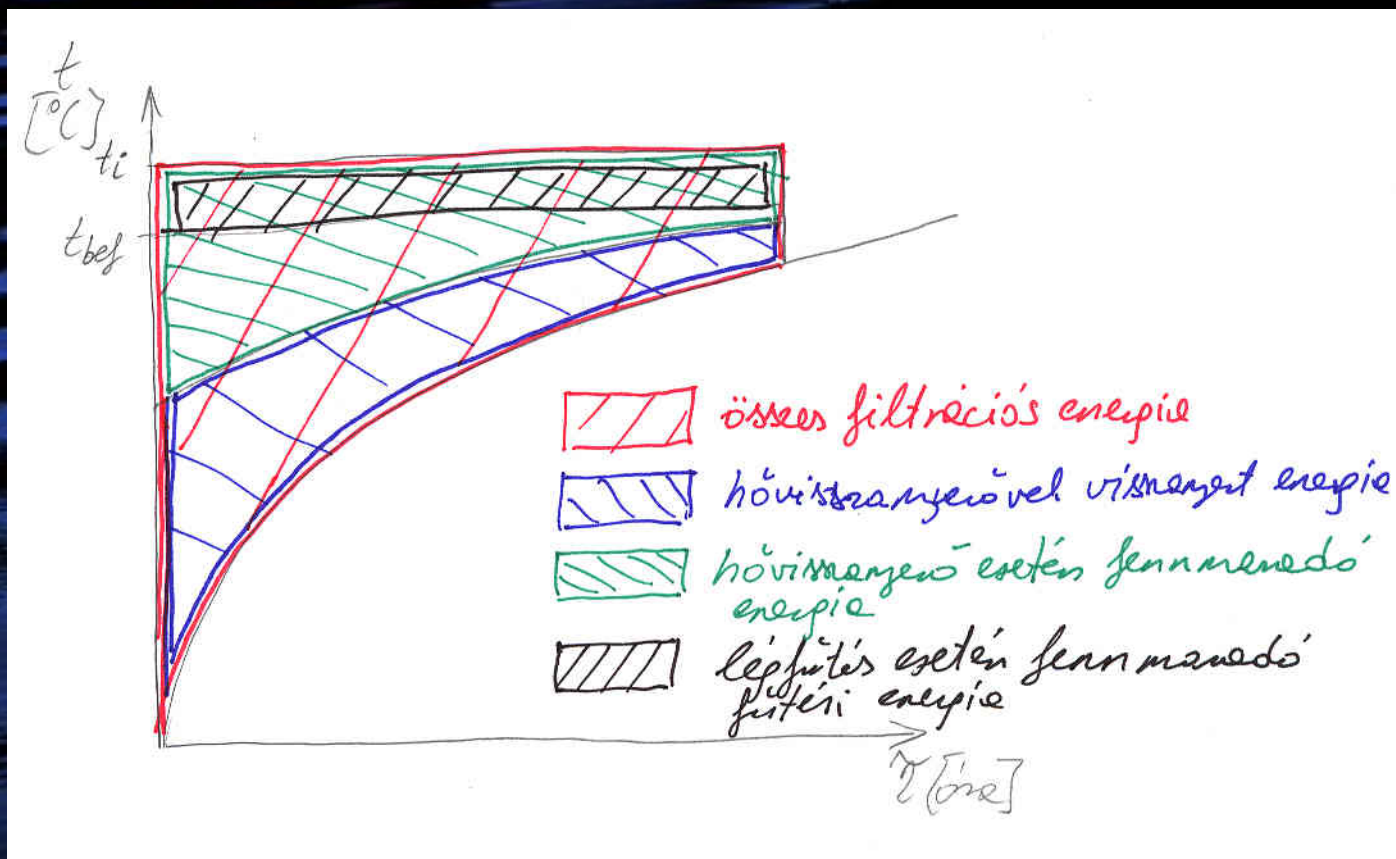 t
[°C]
ti
tbef
összes filtrációs energia
hővisszanyerővel visszanyert energia
hővisszanyerő esetén fennmaradó
energia
légfűtés esetén fennmaradó
fűtési energia
τ [óra]